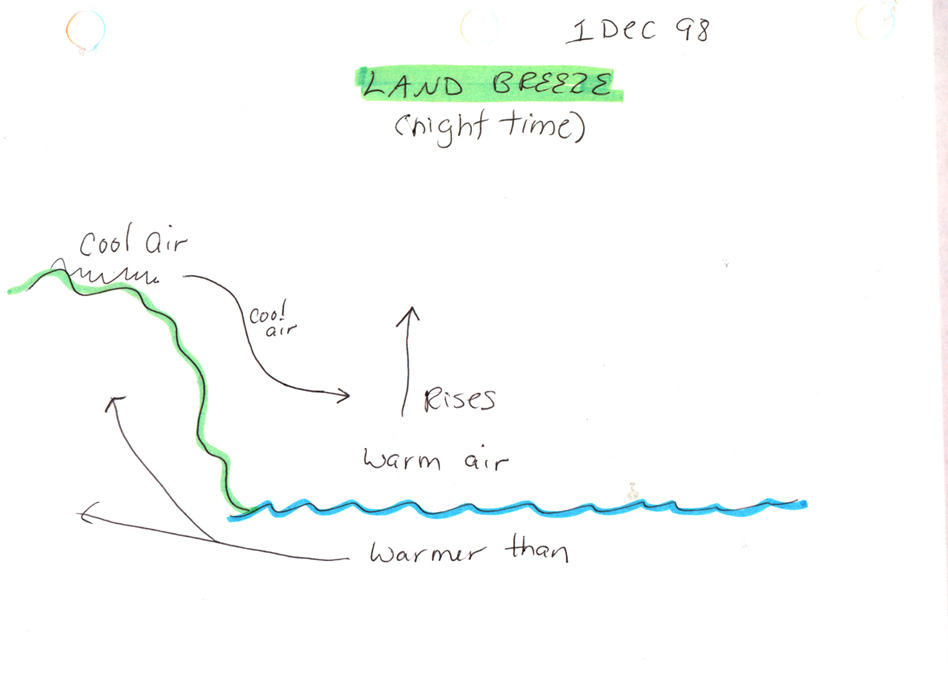 1 Dec 98
LAND BREEZE
(night time)
Cool air
cool
air
Rises
Warm air
Warmer than